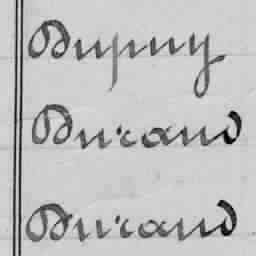 Dupuy
Durand
Durand